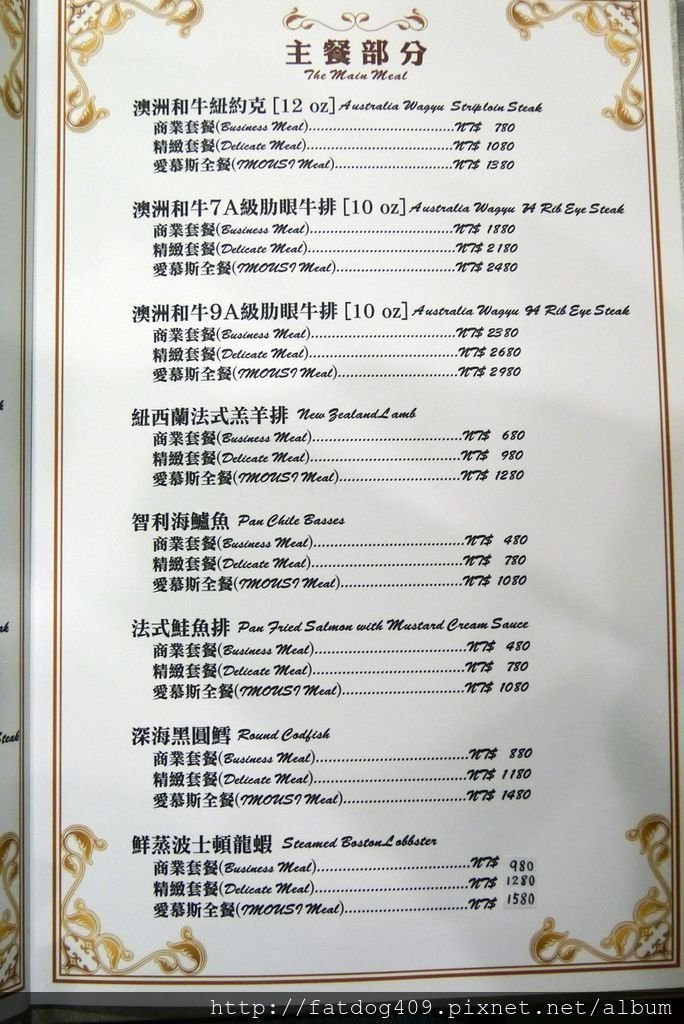 主餐部分
The Main Meal
澳洲和牛紐約克 [12 oz] Australia Wagyu Striploin Steak
商業套餐(Business Meal)..................................NT$ 780
精緻套餐(Delicate Meal)..................................NT$ 1080
愛慕斯全餐(IMOUSI Meal)............................NT$ 1380
澳洲和牛7A級肋眼牛排 [10 oz] Australia Wagyu 7A Rib Eye Steak
商業套餐(Business Meal)..................................NT$ 1880
精緻套餐(Delicate Meal)..................................NT$ 2180
愛慕斯全餐(IMOUSI Meal)............................NT$ 2480
澳洲和牛9A級肋眼牛排 [10 oz] Australia Wagyu 9A Rib Eye Steak
商業套餐(Business Meal)..................................NT$ 2380
精緻套餐(Delicate Meal)..................................NT$ 2680
愛慕斯全餐(IMOUSI Meal)............................NT$ 2980
紐西蘭法式羔羊排 New Zealand Lamb
商業套餐(Business Meal)..................................NT$ 680
精緻套餐(Delicate Meal)..................................NT$ 980
愛慕斯全餐(IMOUSI Meal)............................NT$ 1280
智利海鱸魚 Pan Chile Basses
商業套餐(Business Meal)..................................NT$ 480
精緻套餐(Delicate Meal)..................................NT$ 780
愛慕斯全餐(IMOUSI Meal)............................NT$ 1080
法式鮭魚排 Pan Fried Salmon with Mustard Cream Sauce
商業套餐(Business Meal)..................................NT$ 480
精緻套餐(Delicate Meal)..................................NT$ 780
愛慕斯全餐(IMOUSI Meal)............................NT$ 1080
深海黑圓鱈 Round Codfish
商業套餐(Business Meal)..................................NT$ 880
精緻套餐(Delicate Meal)..................................NT$ 1180
愛慕斯全餐(IMOUSI Meal)............................NT$ 1480
鮮蒸波士頓龍蝦 Steamed Boston Lobbster
商業套餐(Business Meal)..................................NT$ 980
精緻套餐(Delicate Meal)..................................NT$ 1280
愛慕斯全餐(IMOUSI Meal)............................NT$ 1580
http://fatdog409.pixnet.net/album